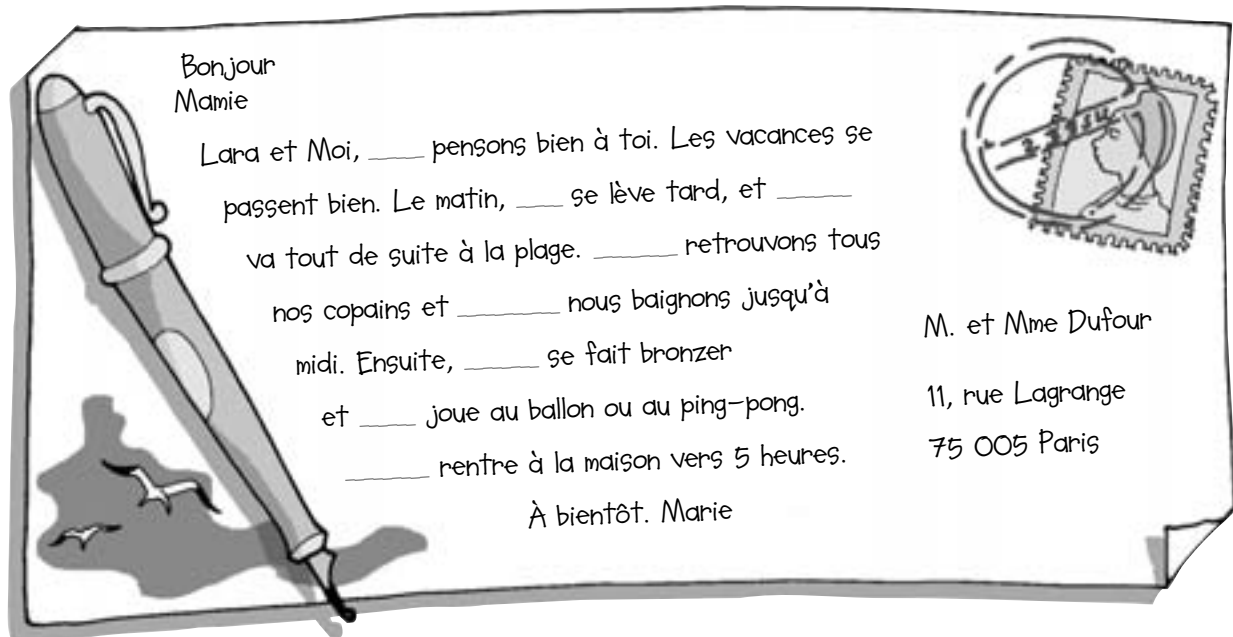 Bonjour
Mamie
Lara et Moi, ____ pensons bien à toi. Les vacances se
passent bien. Le matin, ____ se lève tard, et ____
va tout de suite à la plage. ____ retrouvons tous
nos copains et ____ nous baignons jusqu'à
midi. Ensuite, ____ se fait bronzer
et ____ joue au ballon ou au ping-pong.
____ rentre à la maison vers 5 heures.
À bientôt. Marie
M. et Mme Dufour
11, rue Lagrange
75 005 Paris